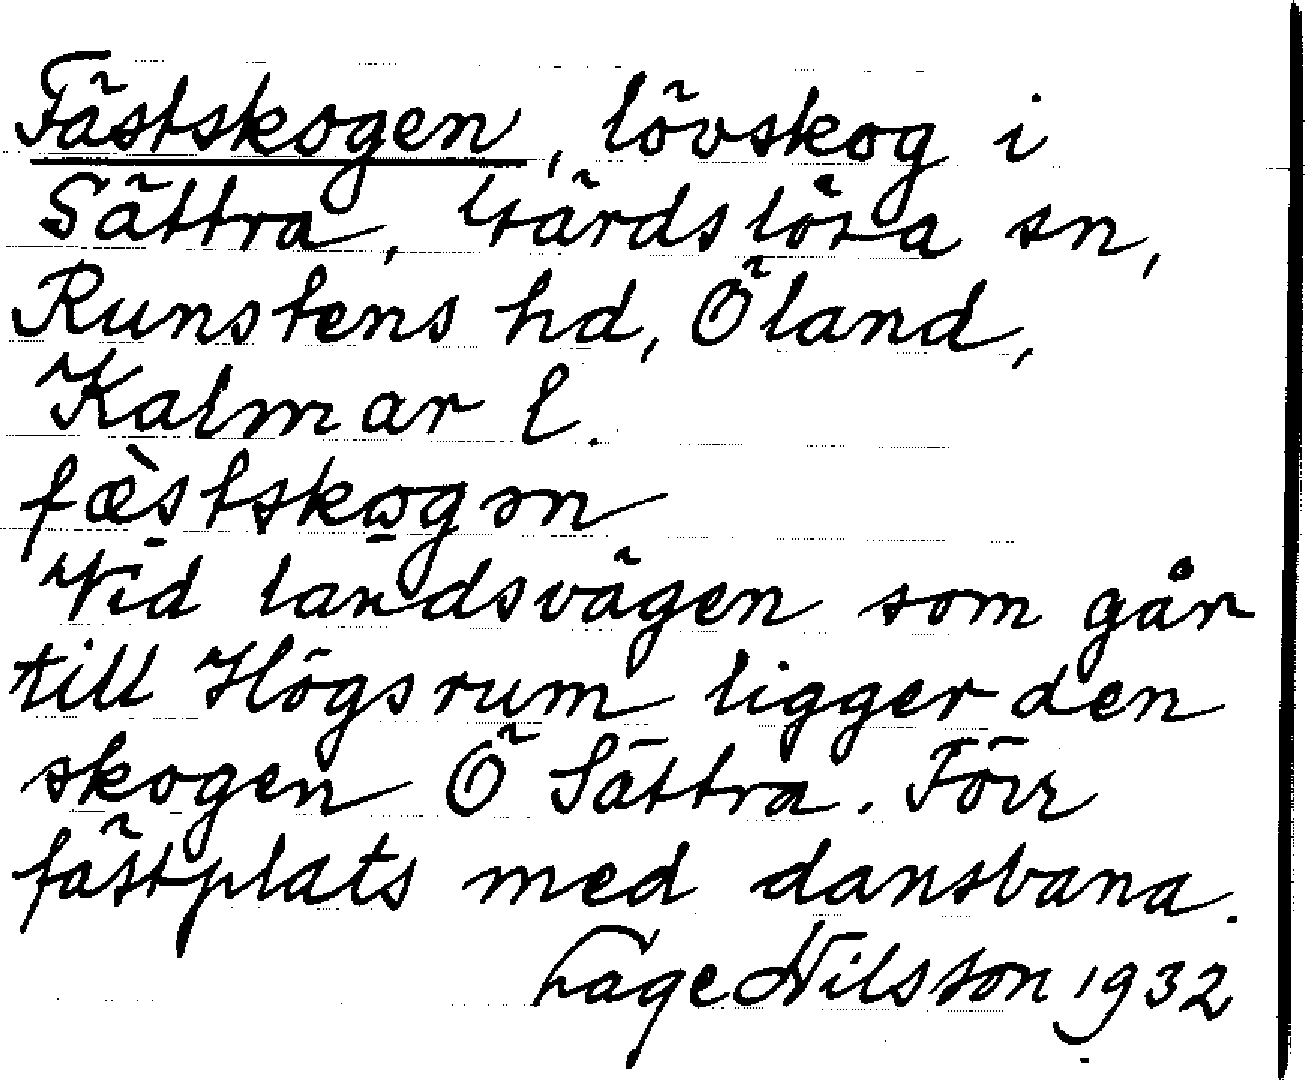 Fästskogen, lövskog i
Sättra, Gärdslösa sn,
Runstens hd, Öland,
Kalmar l.
fæ̀stskωgən
Vid landsvägen som går
till Högsrum ligger den
skogen Ö Sättra. Förr
fästplats med dansbana.
Lage Nilsson 1932